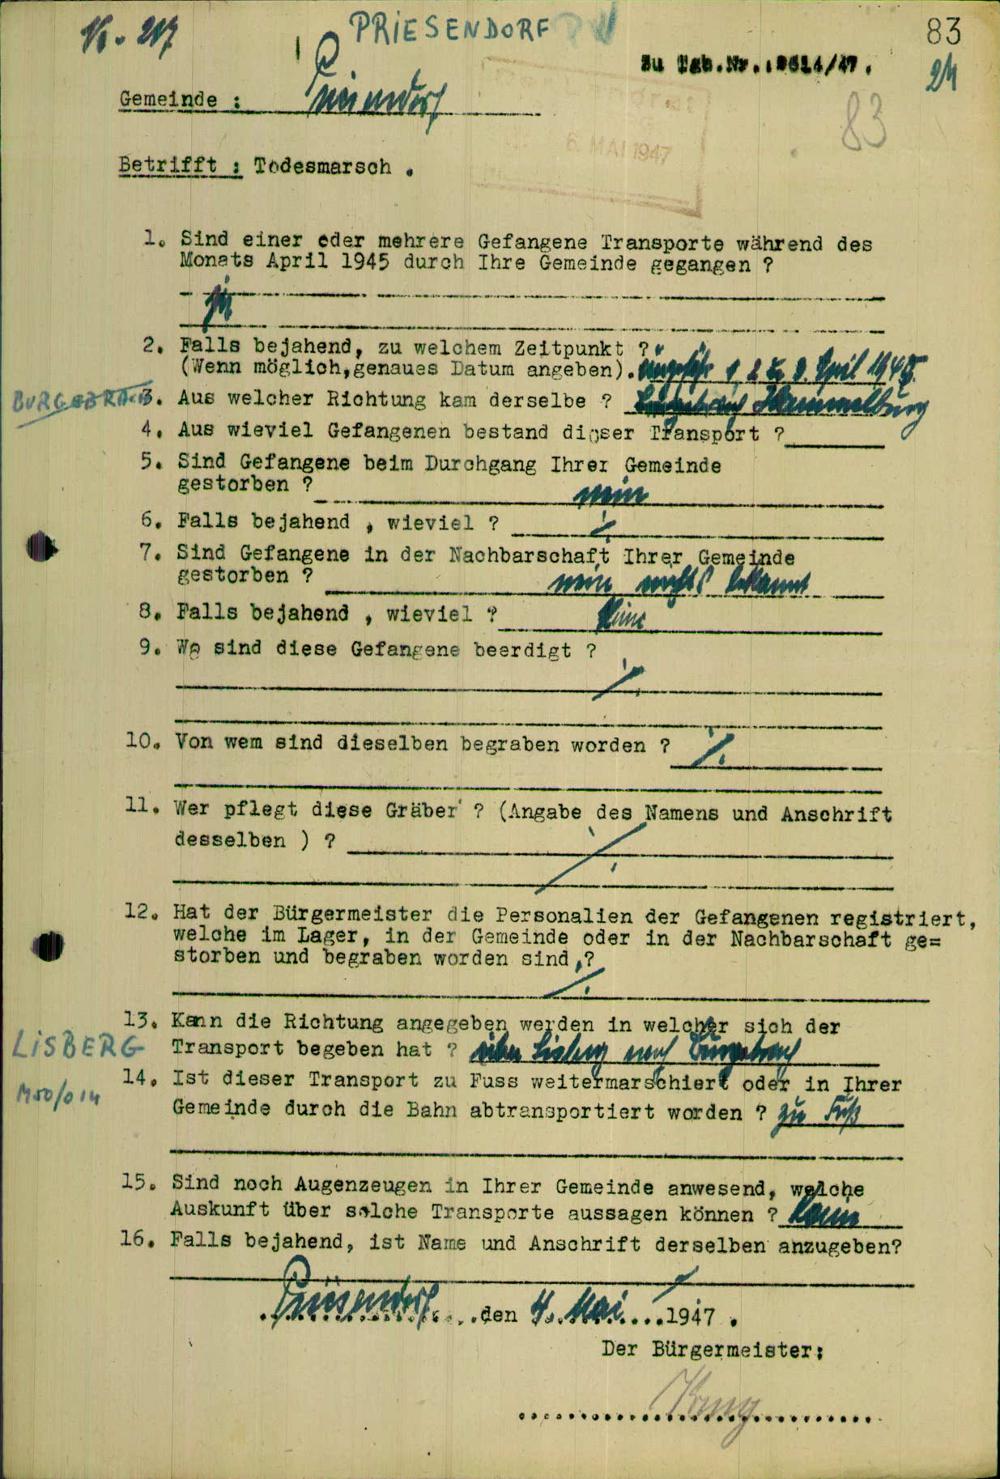 PRIESENDORF
83
Zu Tgb.Nr.: 2614/47.
24
Gemeinde : Priesendorf
83
6 MAI 1947
Betrifft : Todesmarsch .
1. Sind einer oder mehrere Gefangene Transporte während des
Monats April 1945 durch Ihre Gemeinde gegangen ?
ja
2. Falls bejahend, zu welchem Zeitpunkt ?
(Wenn möglich,genaues Datum angeben). ungefähr 1, 2 u. 3. April 1945.
BURGEBRACH
3. Aus welcher Richtung kam derselbe ? Hammelburg
4. Aus wieviel Gefangenen bestand dieser Transport ?
5. Sind Gefangene beim Durchgang Ihrer Gemeinde
gestorben ? nein
6. Falls bejahend , wieviel ?
7. Sind Gefangene in der Nachbarschaft Ihrer Gemeinde
gestorben ? nein nichts bekannt
8. Falls bejahend , wieviel ? Keine
9. Wo sind diese Gefangene beerdigt ?
10. Von wem sind dieselben begraben worden ?
11. Wer pflegt diese Gräber ? (Angabe des Namens und Anschrift
desselben ) ?
12. Hat der Bürgermeister die Personalien der Gefangenen registriert,
welche im Lager, in der Gemeinde oder in der Nachbarschaft ge=
storben und begraben worden sind ?
13. Kann die Richtung angegeben werden in welcher sich der
LISBERG
Transport begeben hat ? über Lisberg nach Burgebrach
14. Ist dieser Transport zu Fuss weitermarschiert oder in Ihrer
M50/014
Gemeinde durch die Bahn abtransportiert worden ? zu Fuß
15. Sind noch Augenzeugen in Ihrer Gemeinde anwesend, welche
Auskunft über solche Transporte aussagen können ?
16. Falls bejahend, ist Name und Anschrift derselben anzugeben?
Priesendorf den 4. Mai 1947 .
Der Bürgermeister: